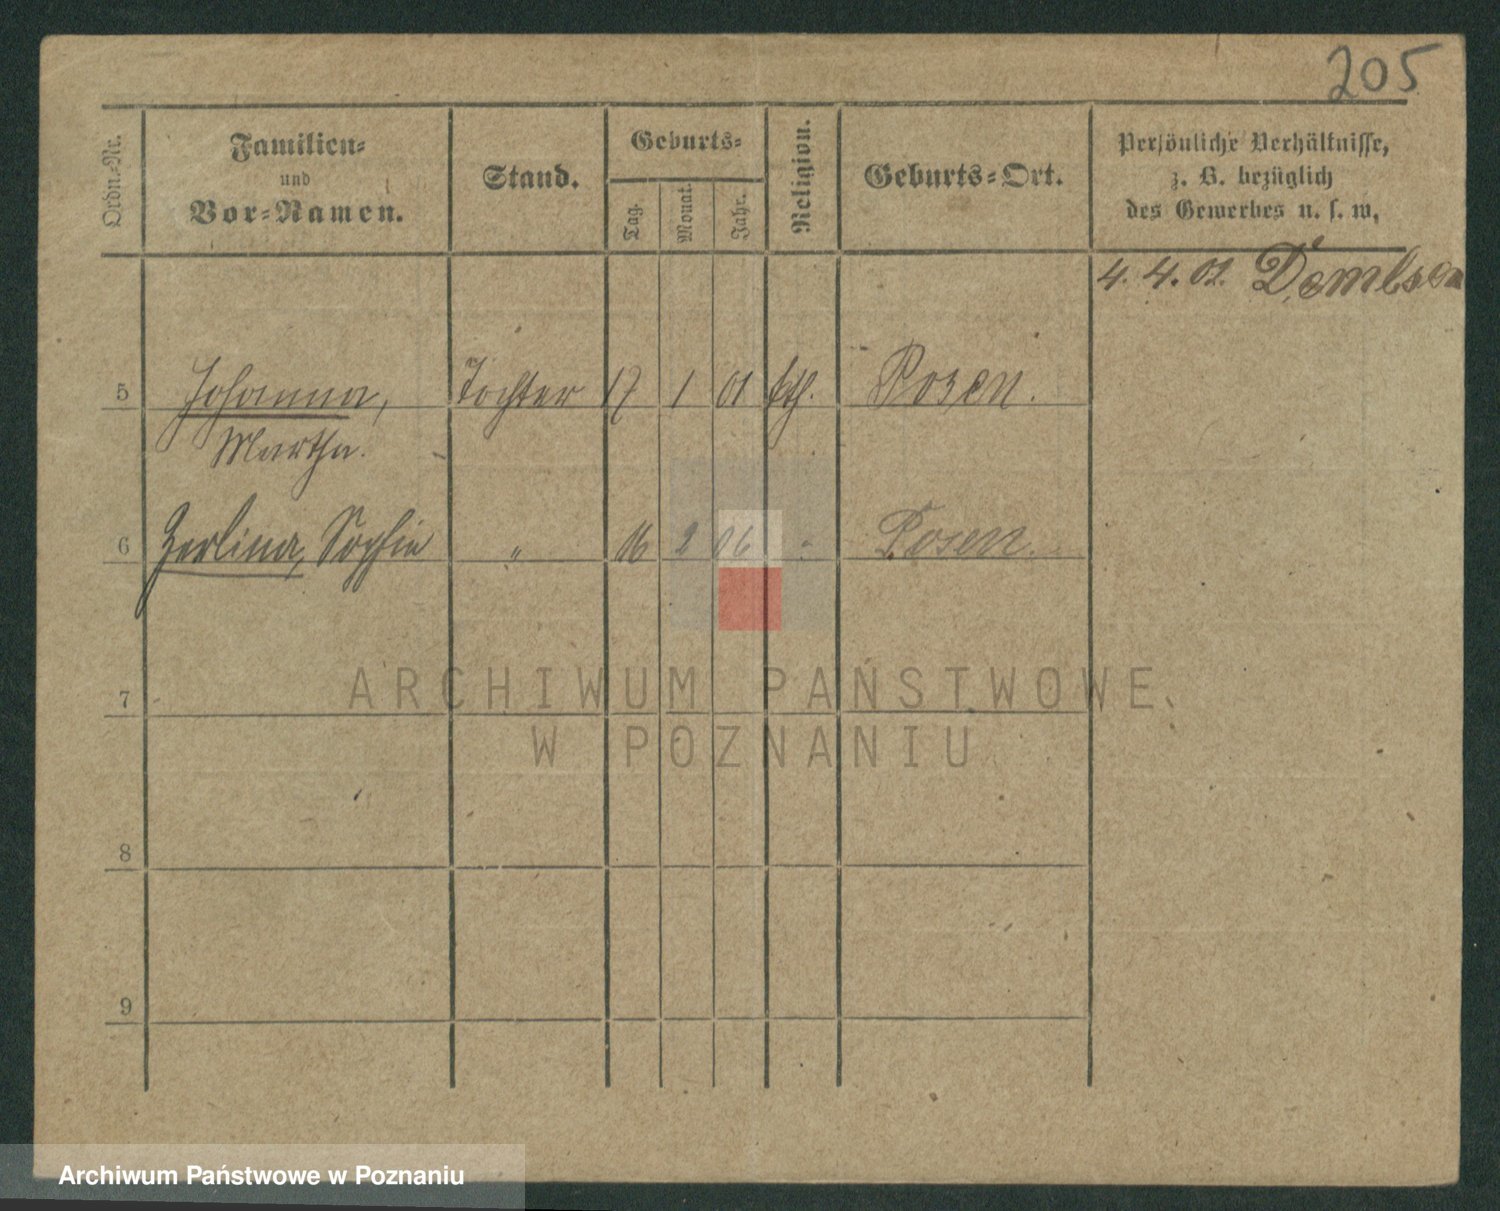 205
Ordn.-Nr.
Familien-
und
Vor-Namen.
Stand.
Geburts-
Tag.
Monat.
Jahr.
Religion.
Geburts-Ort.
Persönliche Verhältnisse,
z. B. bezüglich
des Gewerbes u. s. w.
4. 4. 02. Dembsen
5 Johanna, Tochter 17 1 01 kth. Posen.
Martha.
6 Zerlina, Sophie " 16 2 06 " Posen.
7
8
9
ARCHIWUM PAŃSTWOWE
W POZNANIU
Archiwum Państwowe w Poznaniu